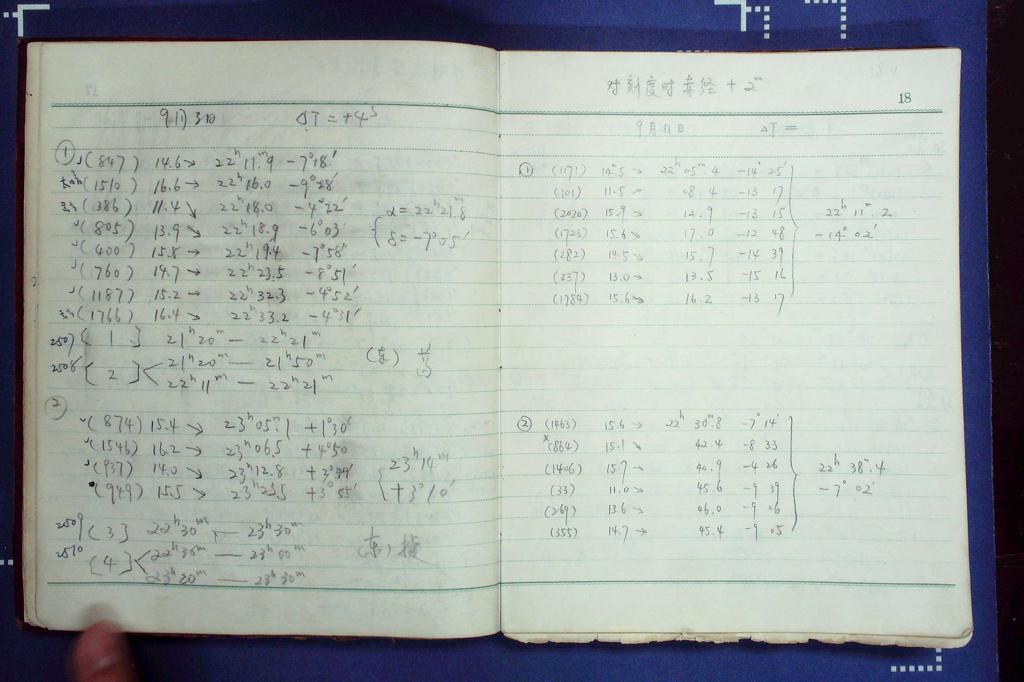 9月3日 ΔT=+4ˢ
①
√(847) 14.6→ 22ʰ11ᵐ.9 -7°18′
(1510) 16.6→ 22ʰ16.0 -9°28′
(386) 11.4↘ 22ʰ18.0 -4°22′
√(805) 13.9↘ 22ʰ18.9 -6°03′
√(400) 15.8→ 22ʰ19.4 -7°58′
√(760) 14.7→ 22ʰ23.5 -8°51′
√(1187) 15.2→ 22ʰ32.3 -4°52′
(1766) 16.4→ 22ʰ33.2 -4°31′
α=22ʰ21ᵐ.8
δ=-7°05′
2507 [1] 21ʰ20ᵐ — 22ʰ21ᵐ
2508 [2] 21ʰ20ᵐ — 21ʰ50ᵐ
22ʰ11ᵐ — 22ʰ21ᵐ
(东)
②
√(874) 15.4↘ 23ʰ05ᵐ.1 +1°30′
√(1546) 16.2→ 23ʰ06.5 +4°50
√(937) 14.0↘ 23ʰ12.8 +3°39′
(949) 15.5↘ 23ʰ23.5 +3°55′
23ʰ14ᵐ
+3°10′
2509 [3] 22ʰ30ᵐ — 23ʰ30ᵐ
2510 [4] 22ʰ30ᵐ — 23ʰ00ᵐ
23ʰ20ᵐ — 23ʰ30ᵐ
(东)
对刻度时赤经+2ᵐ
18
9月11日 ΔT=
① (1171) 14.5↘ 22ʰ05ᵐ.4 -14°25′
(101) 11.5→ 08.4 -13 17
(2020) 15.9↘ 12.9 -13 15
(1723) 15.6↘ 17.0 -12 48
(282) 14.5↘ 15.7 -14 39
(337) 13.0↘ 13.5 -15 16
(1784) 15.6↘ 16.2 -13 17
22ʰ11ᵐ.2
-14°02′
② (1463) 15.6↘ 22ʰ30ᵐ.8 -7°14′
×(864) 15.1↘ 42.4 -8 33
(1406) 15.7→ 40.9 -4 26
(33) 11.0↘ 45.6 -9 39
(269) 13.6↘ 46.0 -9 06
(355) 14.7→ 45.4 -9 05
22ʰ38ᵐ.4
-7°02′